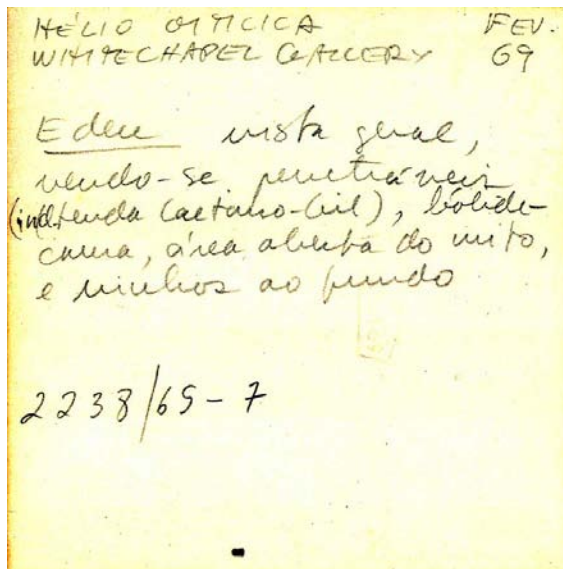 HÉLIO OITICICA FEV.
WHITECHAPEL GALLERY 69
Eden vista geral,
vendo-se penetráveis
(incl. tenda Caetano-Gil), bólide-
cama, área aberta do mito,
e ninhos ao fundo
2238/69-7